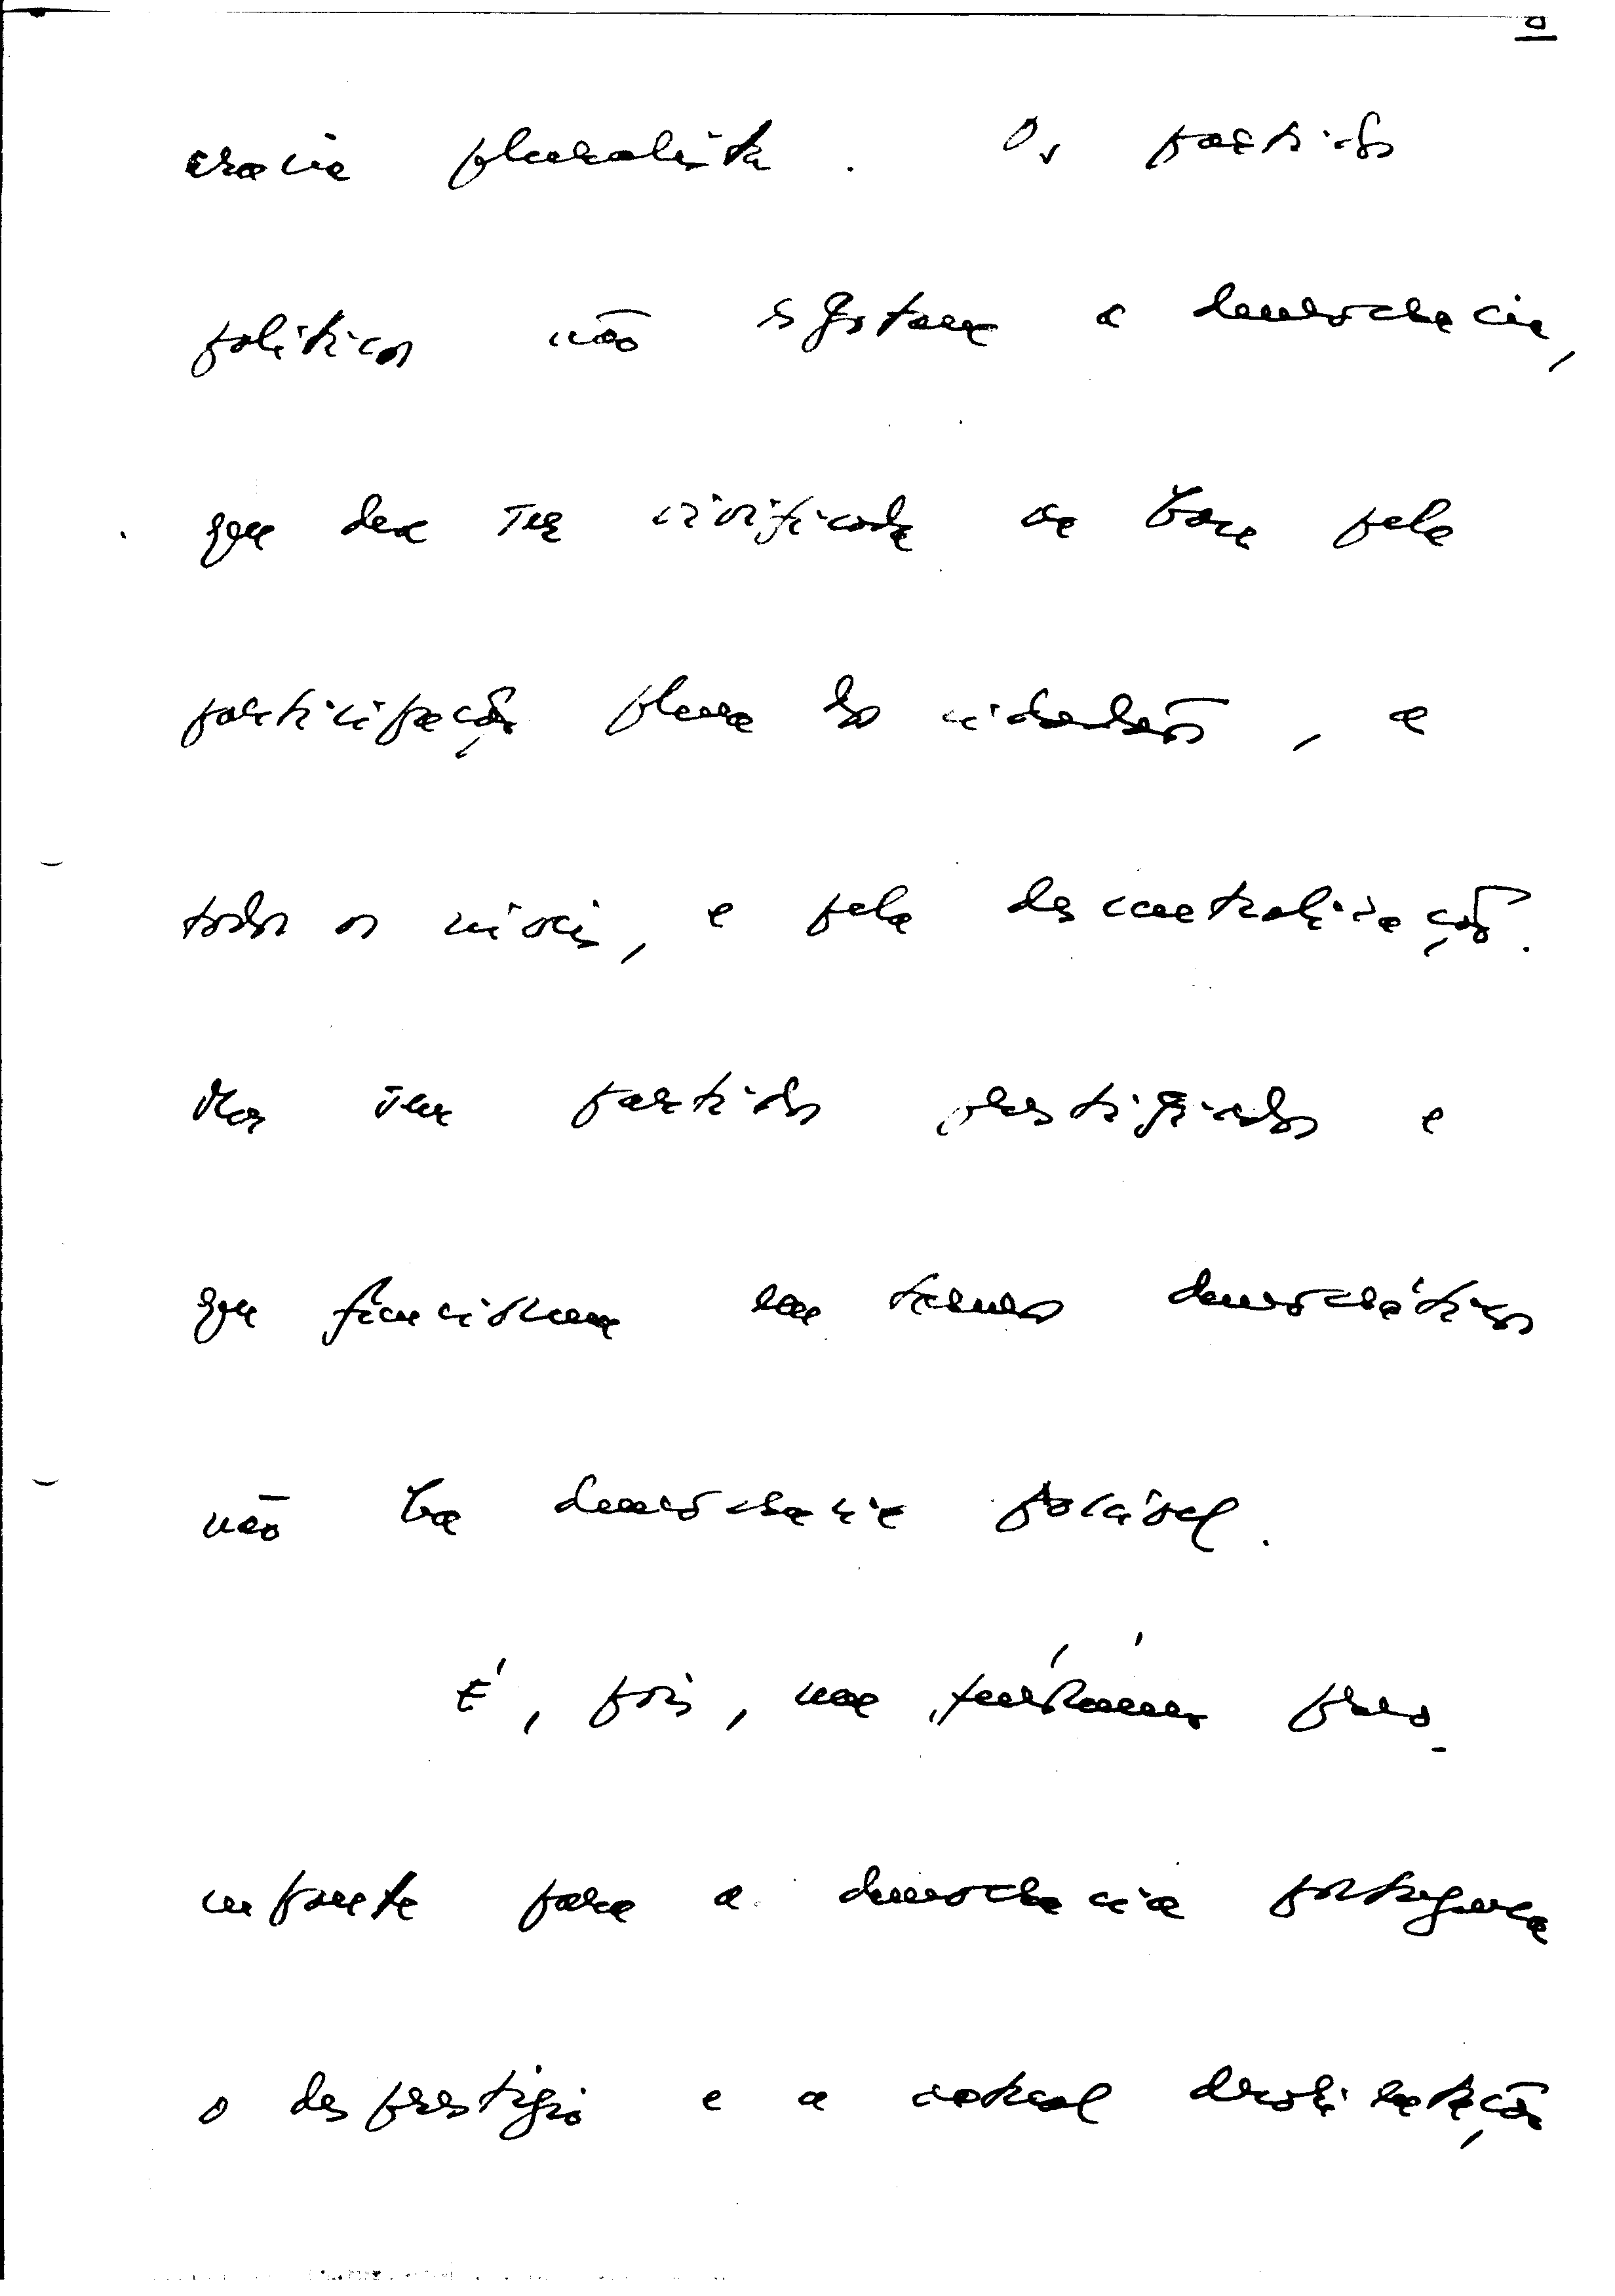 cracia pluralista. Os partidos
políticos não esgotam a democracia,
que deve ser vivificada na base pela
participação plena dos cidadãos, a
todos os níveis, e pela descentralização.
Mas sem partidos prestigiados e
que funcionem em termos democráticos
não há democracia possível.
É, pois, um fenómeno preo-
cupante para a democracia portuguesa
o desprestígio e a actual